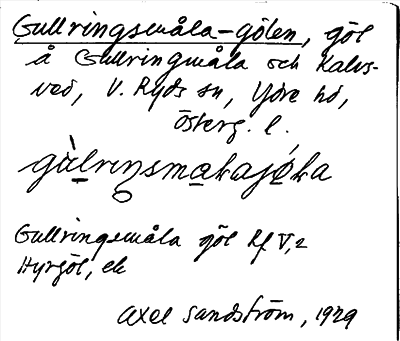 Gullringsmåla-gölen, göl
å Gullringmåla och Kalvs-
ved, V. Ryds sn, Ydre hd,
Österg. l.
Gullringsmåla göl Rf V, 2
Hyrgöl, ek
Axel Sandström, 1929